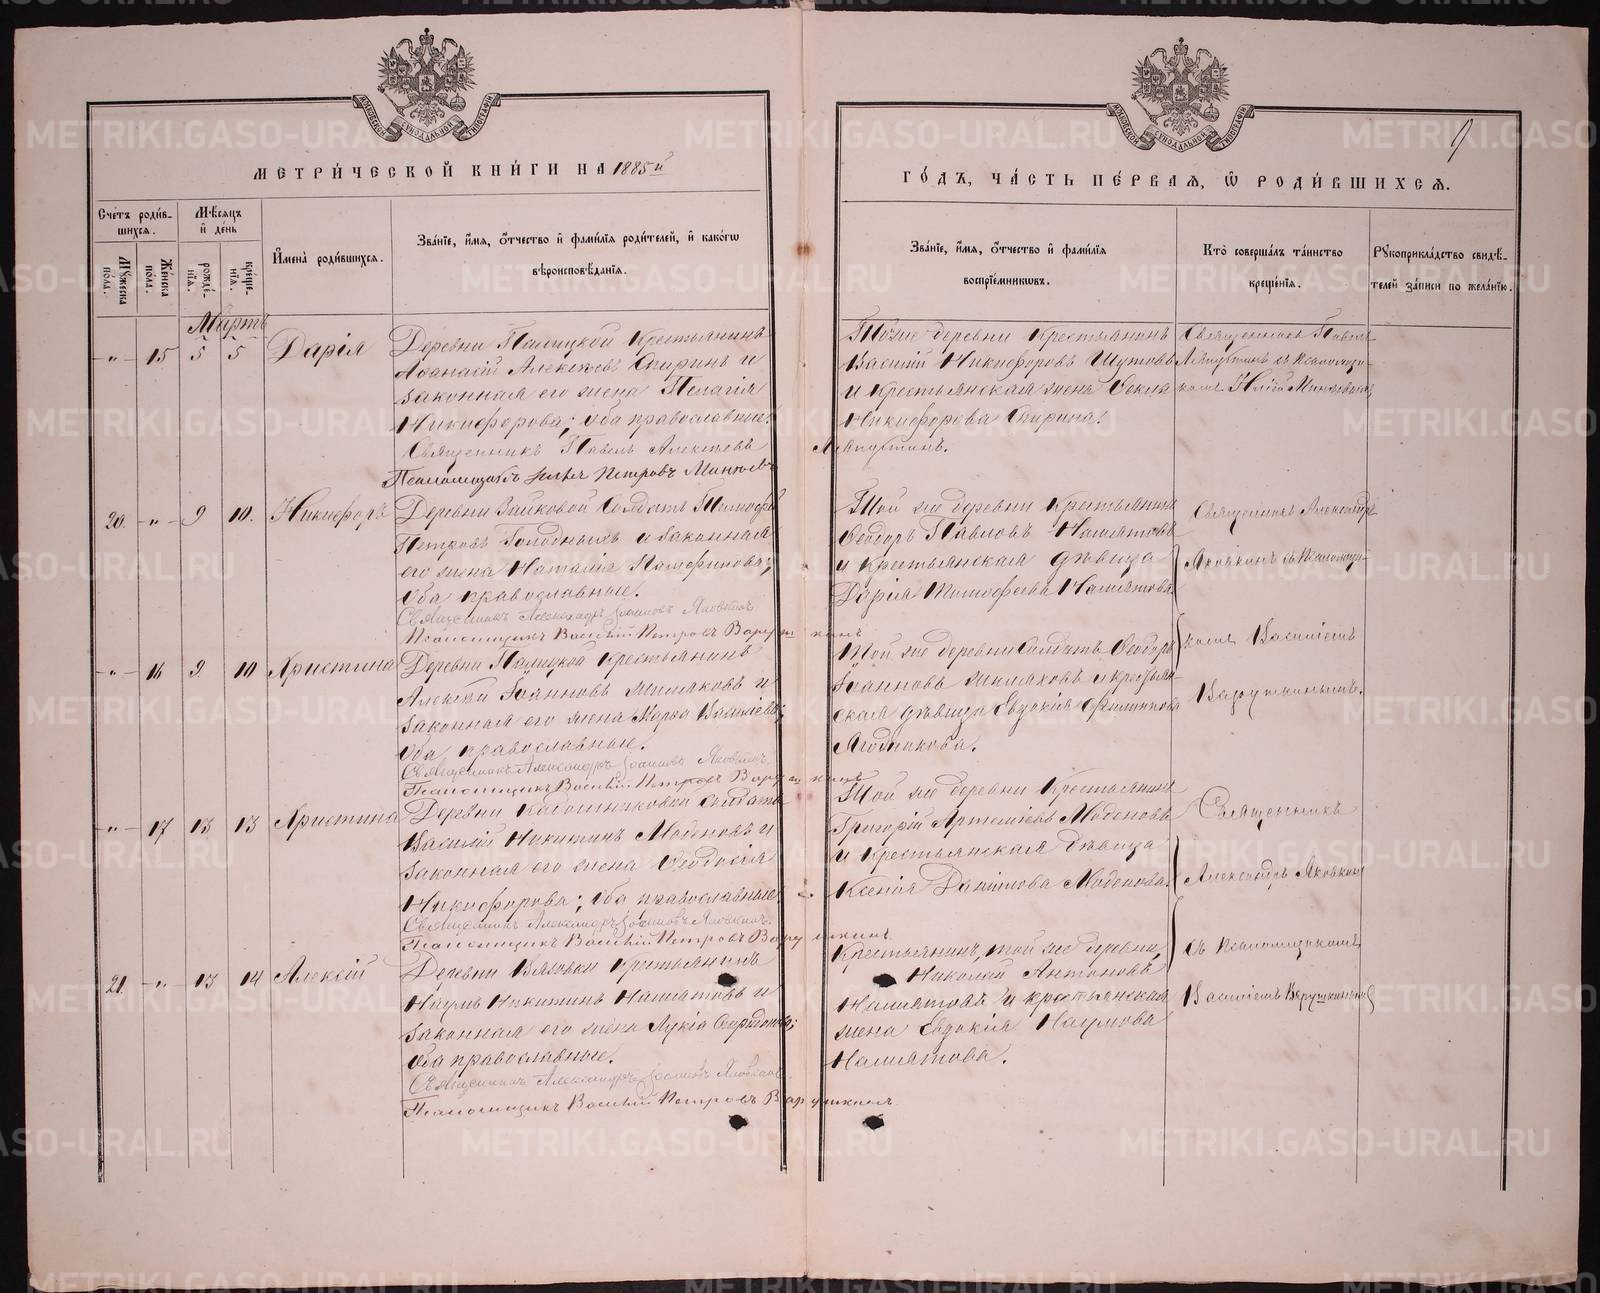 МЕТРИ́ЧЕСКОЙ КНИ́ГИ НА 1885й
ГО́ДЪ, ЧА́СТЬ ПЕ́РВАЯ, Ѽ РОДИ́ВШИХСѦ.
Сче́тъ роди́в-
шихсѧ.
Мꙋ́жеска по́ла.
Же́нска по́ла.
Мѣ́сѧцъ
и҆ де́нь
рожде́-
нїѧ.
креще́-
нїѧ.
И҆мена̀ роди́вшихсѧ.
Зва́нїе, и҆́мѧ, ѻ҆́тчество и҆ фами́лїѧ роди́телей, и҆ како́гѡ
вѣроисповѣ́данїѧ.
Зва́нїе, и҆́мѧ, ѻ҆́тчество и҆ фами́лїѧ
воспрїе́мникѡвъ.
Кто̀ соверша́лъ та́инство
креще́нїѧ.
Рꙋкоприкла́дство свидѣ́-
телей за́писи по жела́нїю.
Мартъ
-"- 15 5 5 Дарія
Деревни Палицкой Крестьянинъ
Аѳанасій Алексѣевъ Спиринъ и
законная его жена Пелагія
Никифорова; оба православные.
Священникъ Павелъ Алексѣевъ
Лепустинъ.
Псаломщикъ Илія Петровъ
Тойже деревни Крестьянинъ
Василій Никифоровъ Шутовъ
и крестьянская жена Ѳекла
Никифорова Спирина.
Священникъ Павелъ
съ псаломщи-
комъ Иліей
20. -"- 9 10. Никифоръ
Деревни Зайковой Солдатъ Тимофей
Петровъ Голодныхъ и законная
его жена Наталія
оба православные.
Священникъ Александръ Іоанновъ Яковкинъ
Псаломщикъ Василій Петровъ Варушкинъ
Той же деревни Крестьянинъ
Ѳеодоръ Павловъ Нашатовъ
и крестьянская дѣвица
Дарія Тимофеева Нашатова
Священникъ Александръ
Яковкинъ съ псаломщи-
комъ Василіемъ
Варушкинымъ.
-"- 16 9 10 Христина
Деревни Палицкой Крестьянинъ
Алексѣй Іоанновъ и
законная его жена Марѳа Василіева;
оба православные.
Священникъ Александръ Іоанновъ Яковкинъ
Псаломщикъ Василій Петровъ Варушкинъ
Той же деревни Солдатъ Ѳеодоръ
Іоанновъ и крестьян-
ская дѣвица Евдокія Филиппова
Ягодникова.
-"- 17 13 13 Христина
Деревни Кадошниковой Солдатъ
Василій Никитинъ Моденовъ и
законная его жена Ѳеодосія
Никифорова; оба православные.
Священникъ Александръ Іоанновъ Яковкинъ
Псаломщикъ Василій Петровъ Варушкинъ
Той же деревни Крестьянинъ
Григорій Артеміевъ Моденовъ
и крестьянская дѣвица
Ксенія Данилова Моденова.
Священникъ
Александръ Яковкинъ
съ псаломщикомъ
Василіемъ Варушкинымъ
21. -"- 13 14 Алексій
Деревни Вязовки Крестьянинъ
Наумъ Никитинъ Нашатовъ и
законная его жена Лукія
оба православные.
Священникъ Александръ Іоанновъ Яковкинъ
Псаломщикъ Василій Петровъ Варушкинъ
Крестьянинъ, той же деревни,
Николай Антоновъ
Нашатовъ и крестьянская
жена Евдокія Наумова
Нашатова.
METRIKI.GASO-URAL.RU